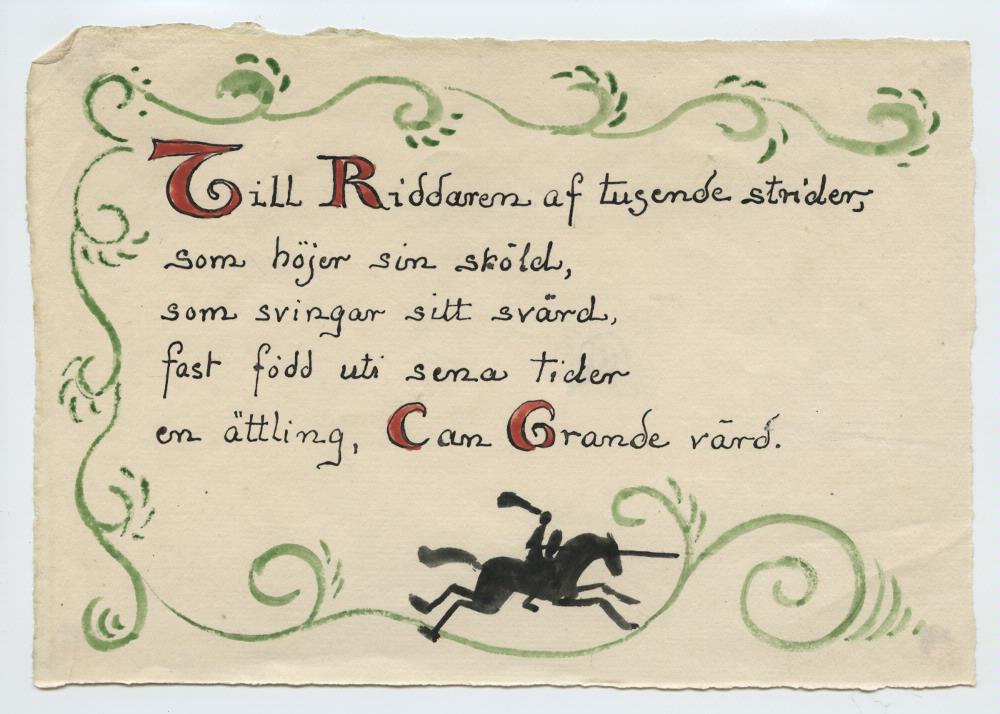 Till Riddaren af tusende strider,
som höjer sin sköld,
som svingar sitt svärd,
fast född uti sena tider
en ättling, Can Grande värd.